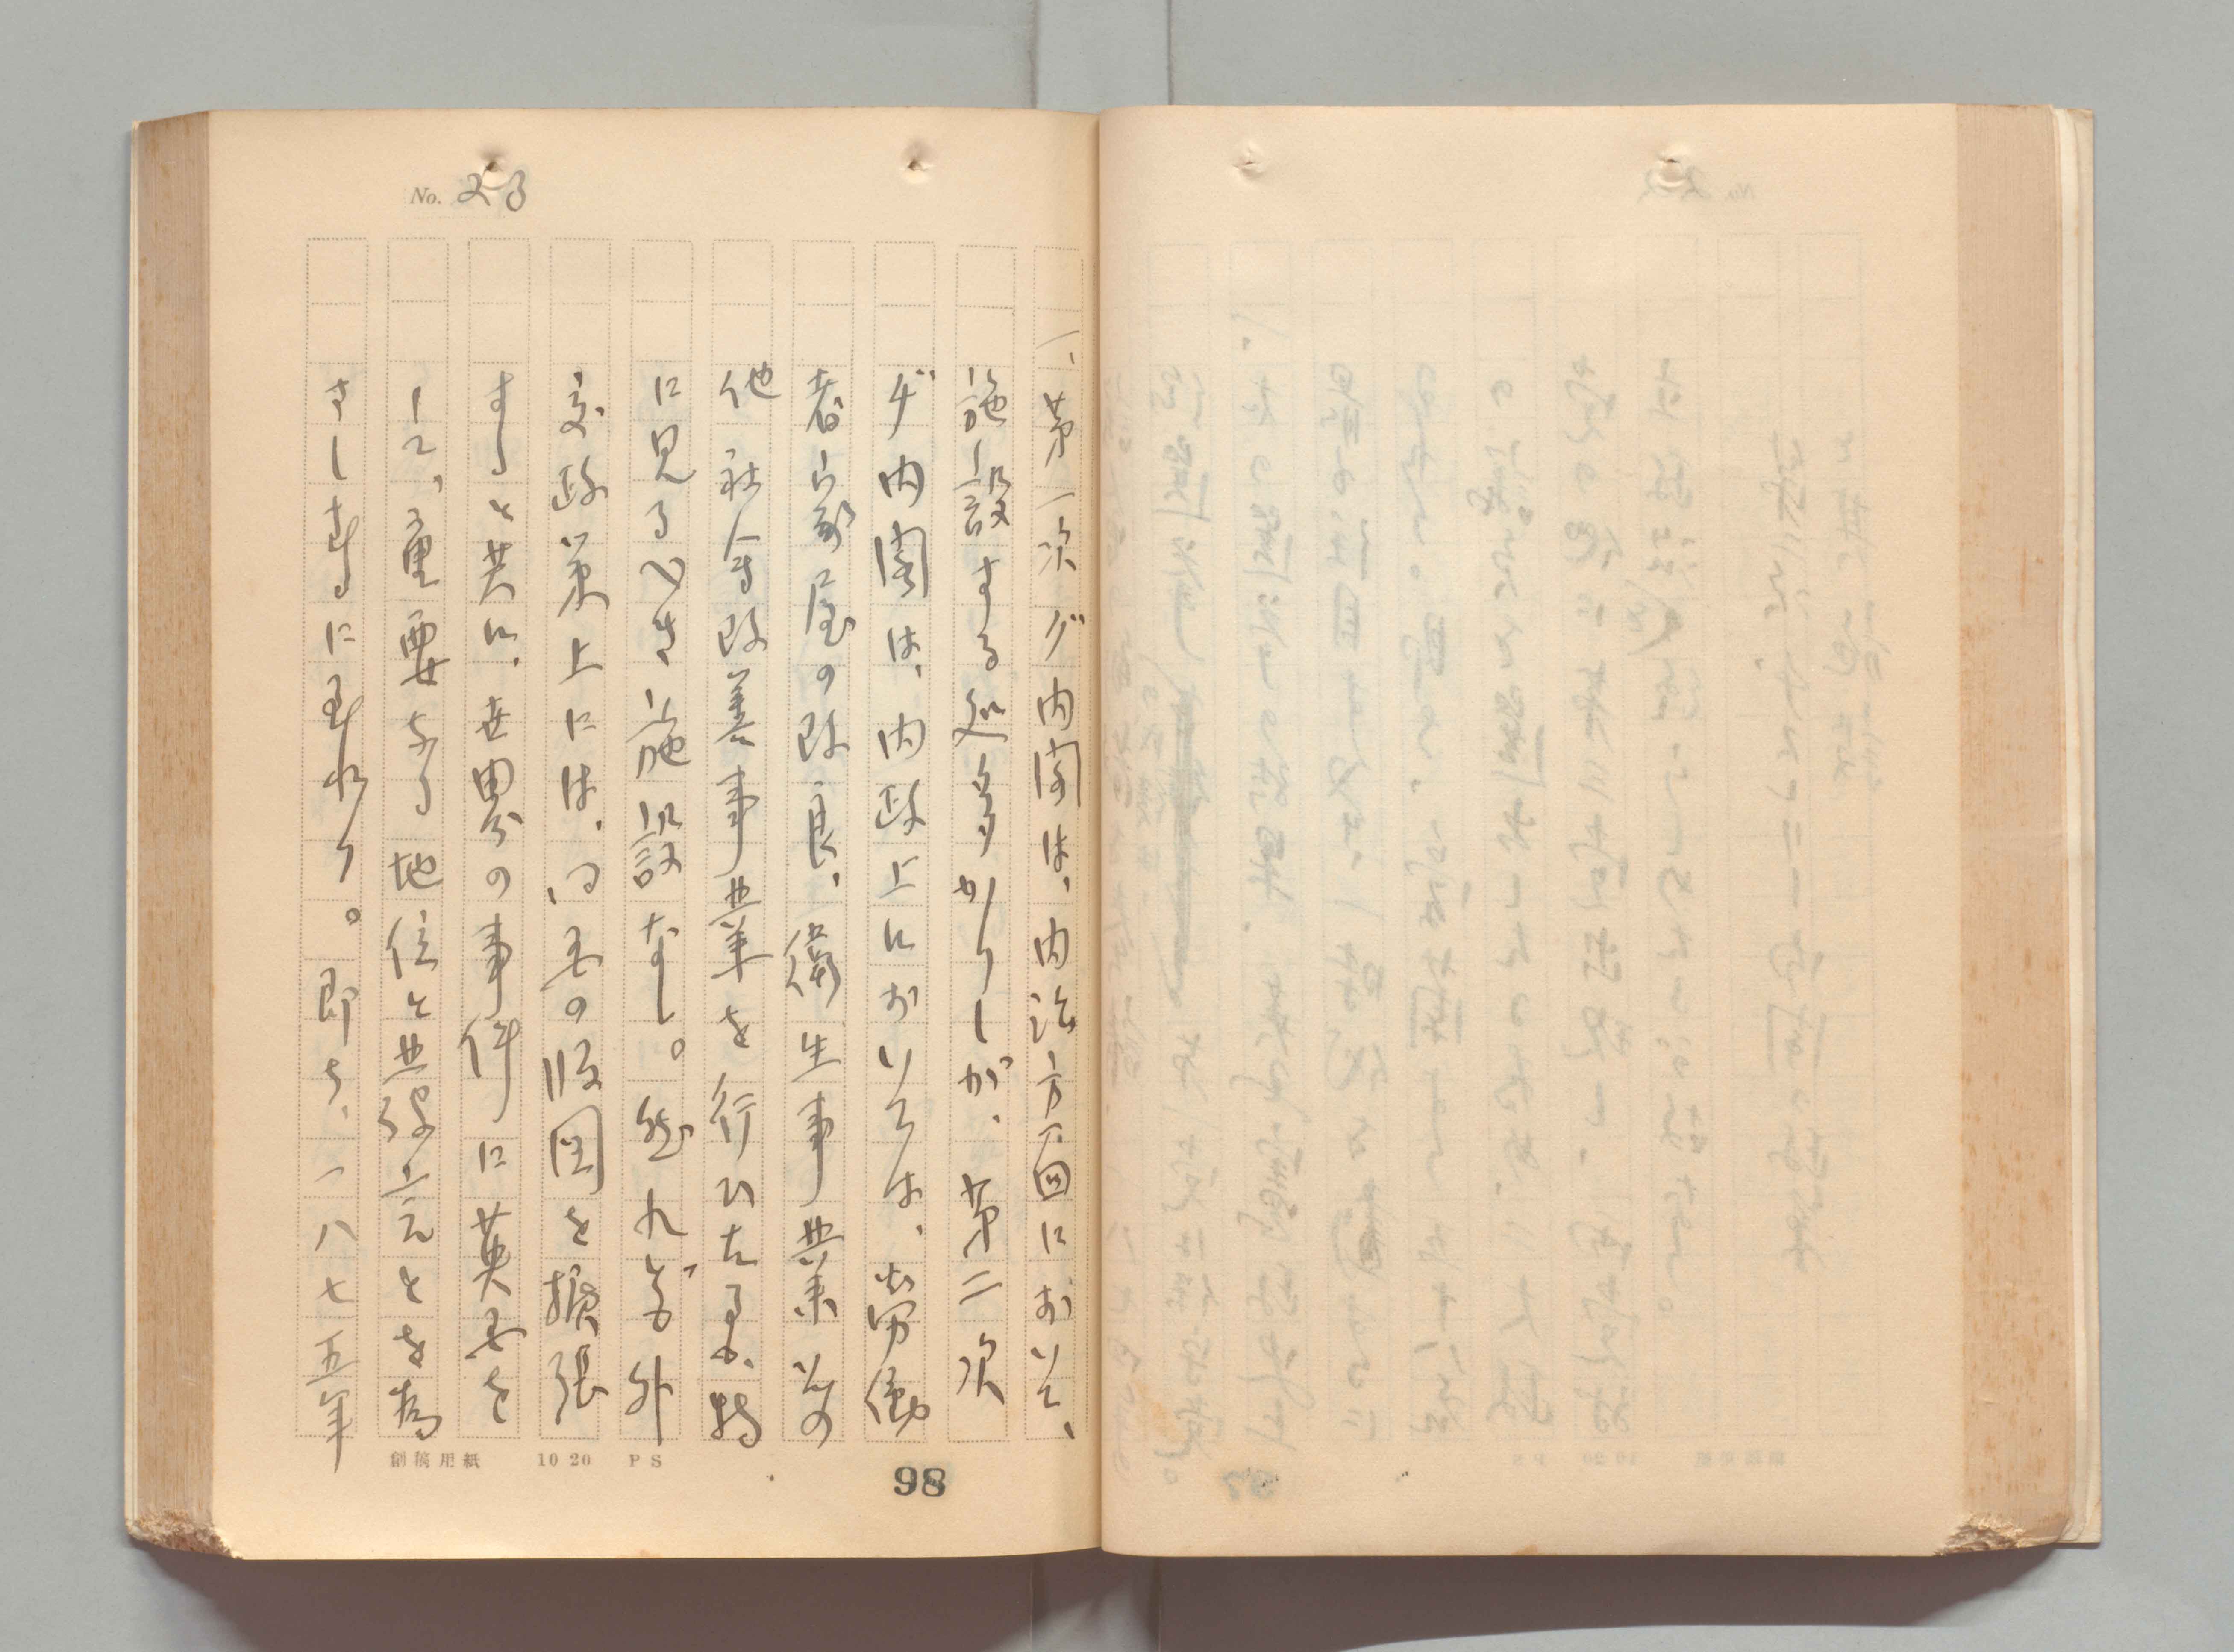 No. 23
一、第一次グ内閣は、内治方面に於いて、
施設する処多かりしが、第二次
ヂ内閣は、内政上に於いては、労働
者家屋の改良、衛生事業等の
他社会改善事業を行ひたる外、特
に見るべき施設なし。然れども外
交政策上には、同国の版図を擴張
すると共に、世界の事件に英国を
して、重要なる地位と発言とを為
さしむるに到れり。即ち、一八七五年
創稿用紙 10 20 P S
98